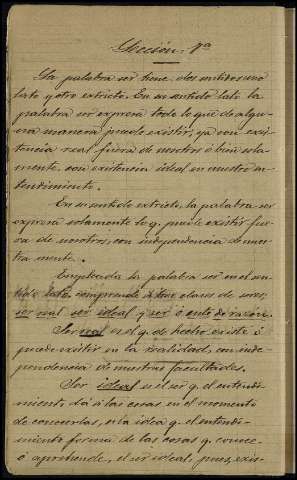 Lección 1ª
La palabra ser tiene dos sentidos uno
lato y otro extricto. En su sentido lato la
palabra ser expresa todo lo que de algu-
na manera puede existir, ya con exis-
tencia real fuera de nosotros ó bien sola-
mente, con existencia ideal en nuestro en-
tendimiento.
En su sentido extricto, la palabra ser
expresa solamente lo q. puede existir fue-
ra de nosotros, con independencia de nues-
tra mente.
Empleada la palabra ser en el sen-
tido lato comprende clases de seres,
ser real ser ideal y ser ó ente de razón.
Ser real es el q. de hecho existe ó
puede existir en la realidad, con inde-
pendencia de nuestras facultades.
Ser ideal es el ser q. el entendi-
miento, dá á las cosas en el momento
de conocerlas, ó la idea q. el entendi-
miento forma de las cosas q. conoce
ó aprehende, el ser ideal, pues, exis-